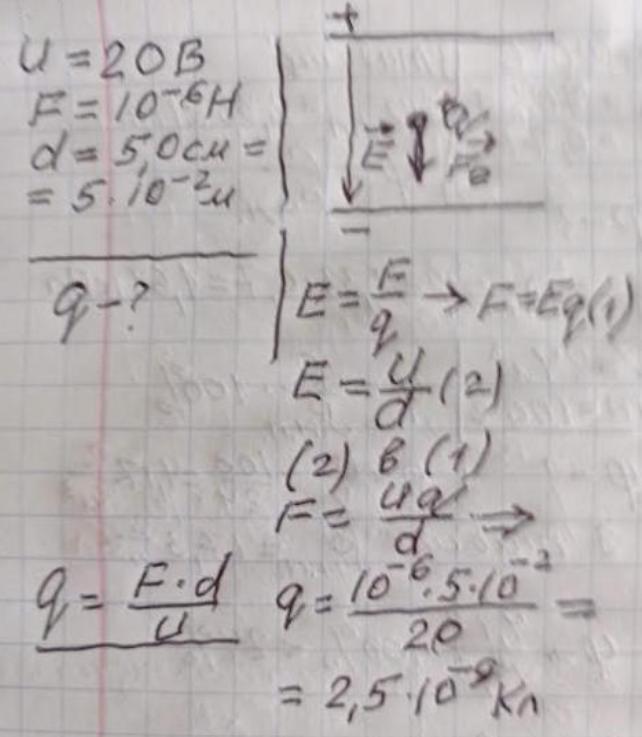 U = 20 В
F = 10⁻⁶ Н
d = 5,0 см =
= 5 · 10⁻² м
q - ?
+
E⃗
q
F⃗э
−
E = F/q → F = Eq (1)
E = U/d (2)
(2) в (1)
F = Uq/d ⇒
q = F · d/U
q = 10⁻⁶ · 5 · 10⁻²/20 =
= 2,5 · 10⁻⁹ Кл